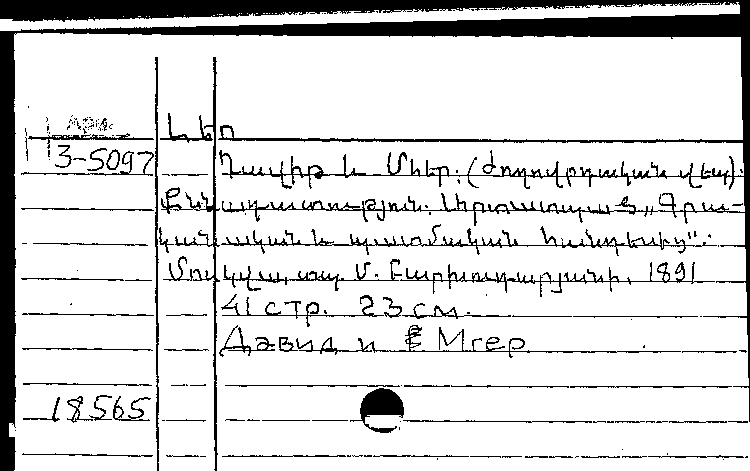 Арм.
Լեո
3-5097
Դավիթ և Մհեր: (Ժողովրդական վեպ):
Քննադատություն: Արտատպած „Գրա-
կանական և պատմական հանդեսից":
Մոսկվա, տպ. Մ. Բարխուդարյանի, 1891
41 стр. 23 см.
Давид и Мгер
18565